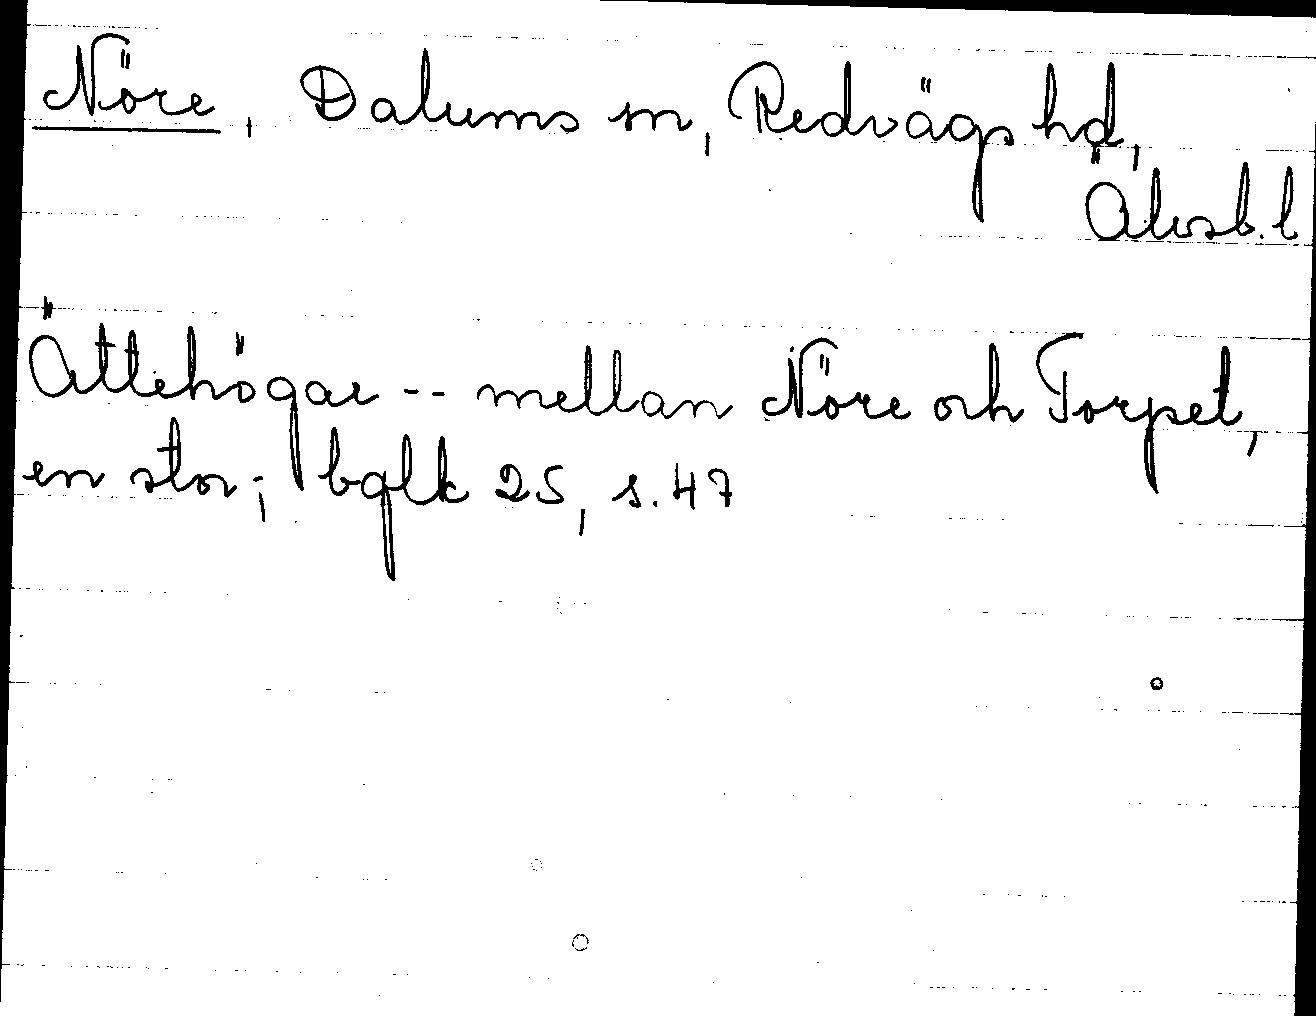 Nöre, Dalums sn, Redvägs hd,
Älvsb. l
Ättehögar -- mellan Nöre och Torpet,
en stor; bglk 25, s. 47